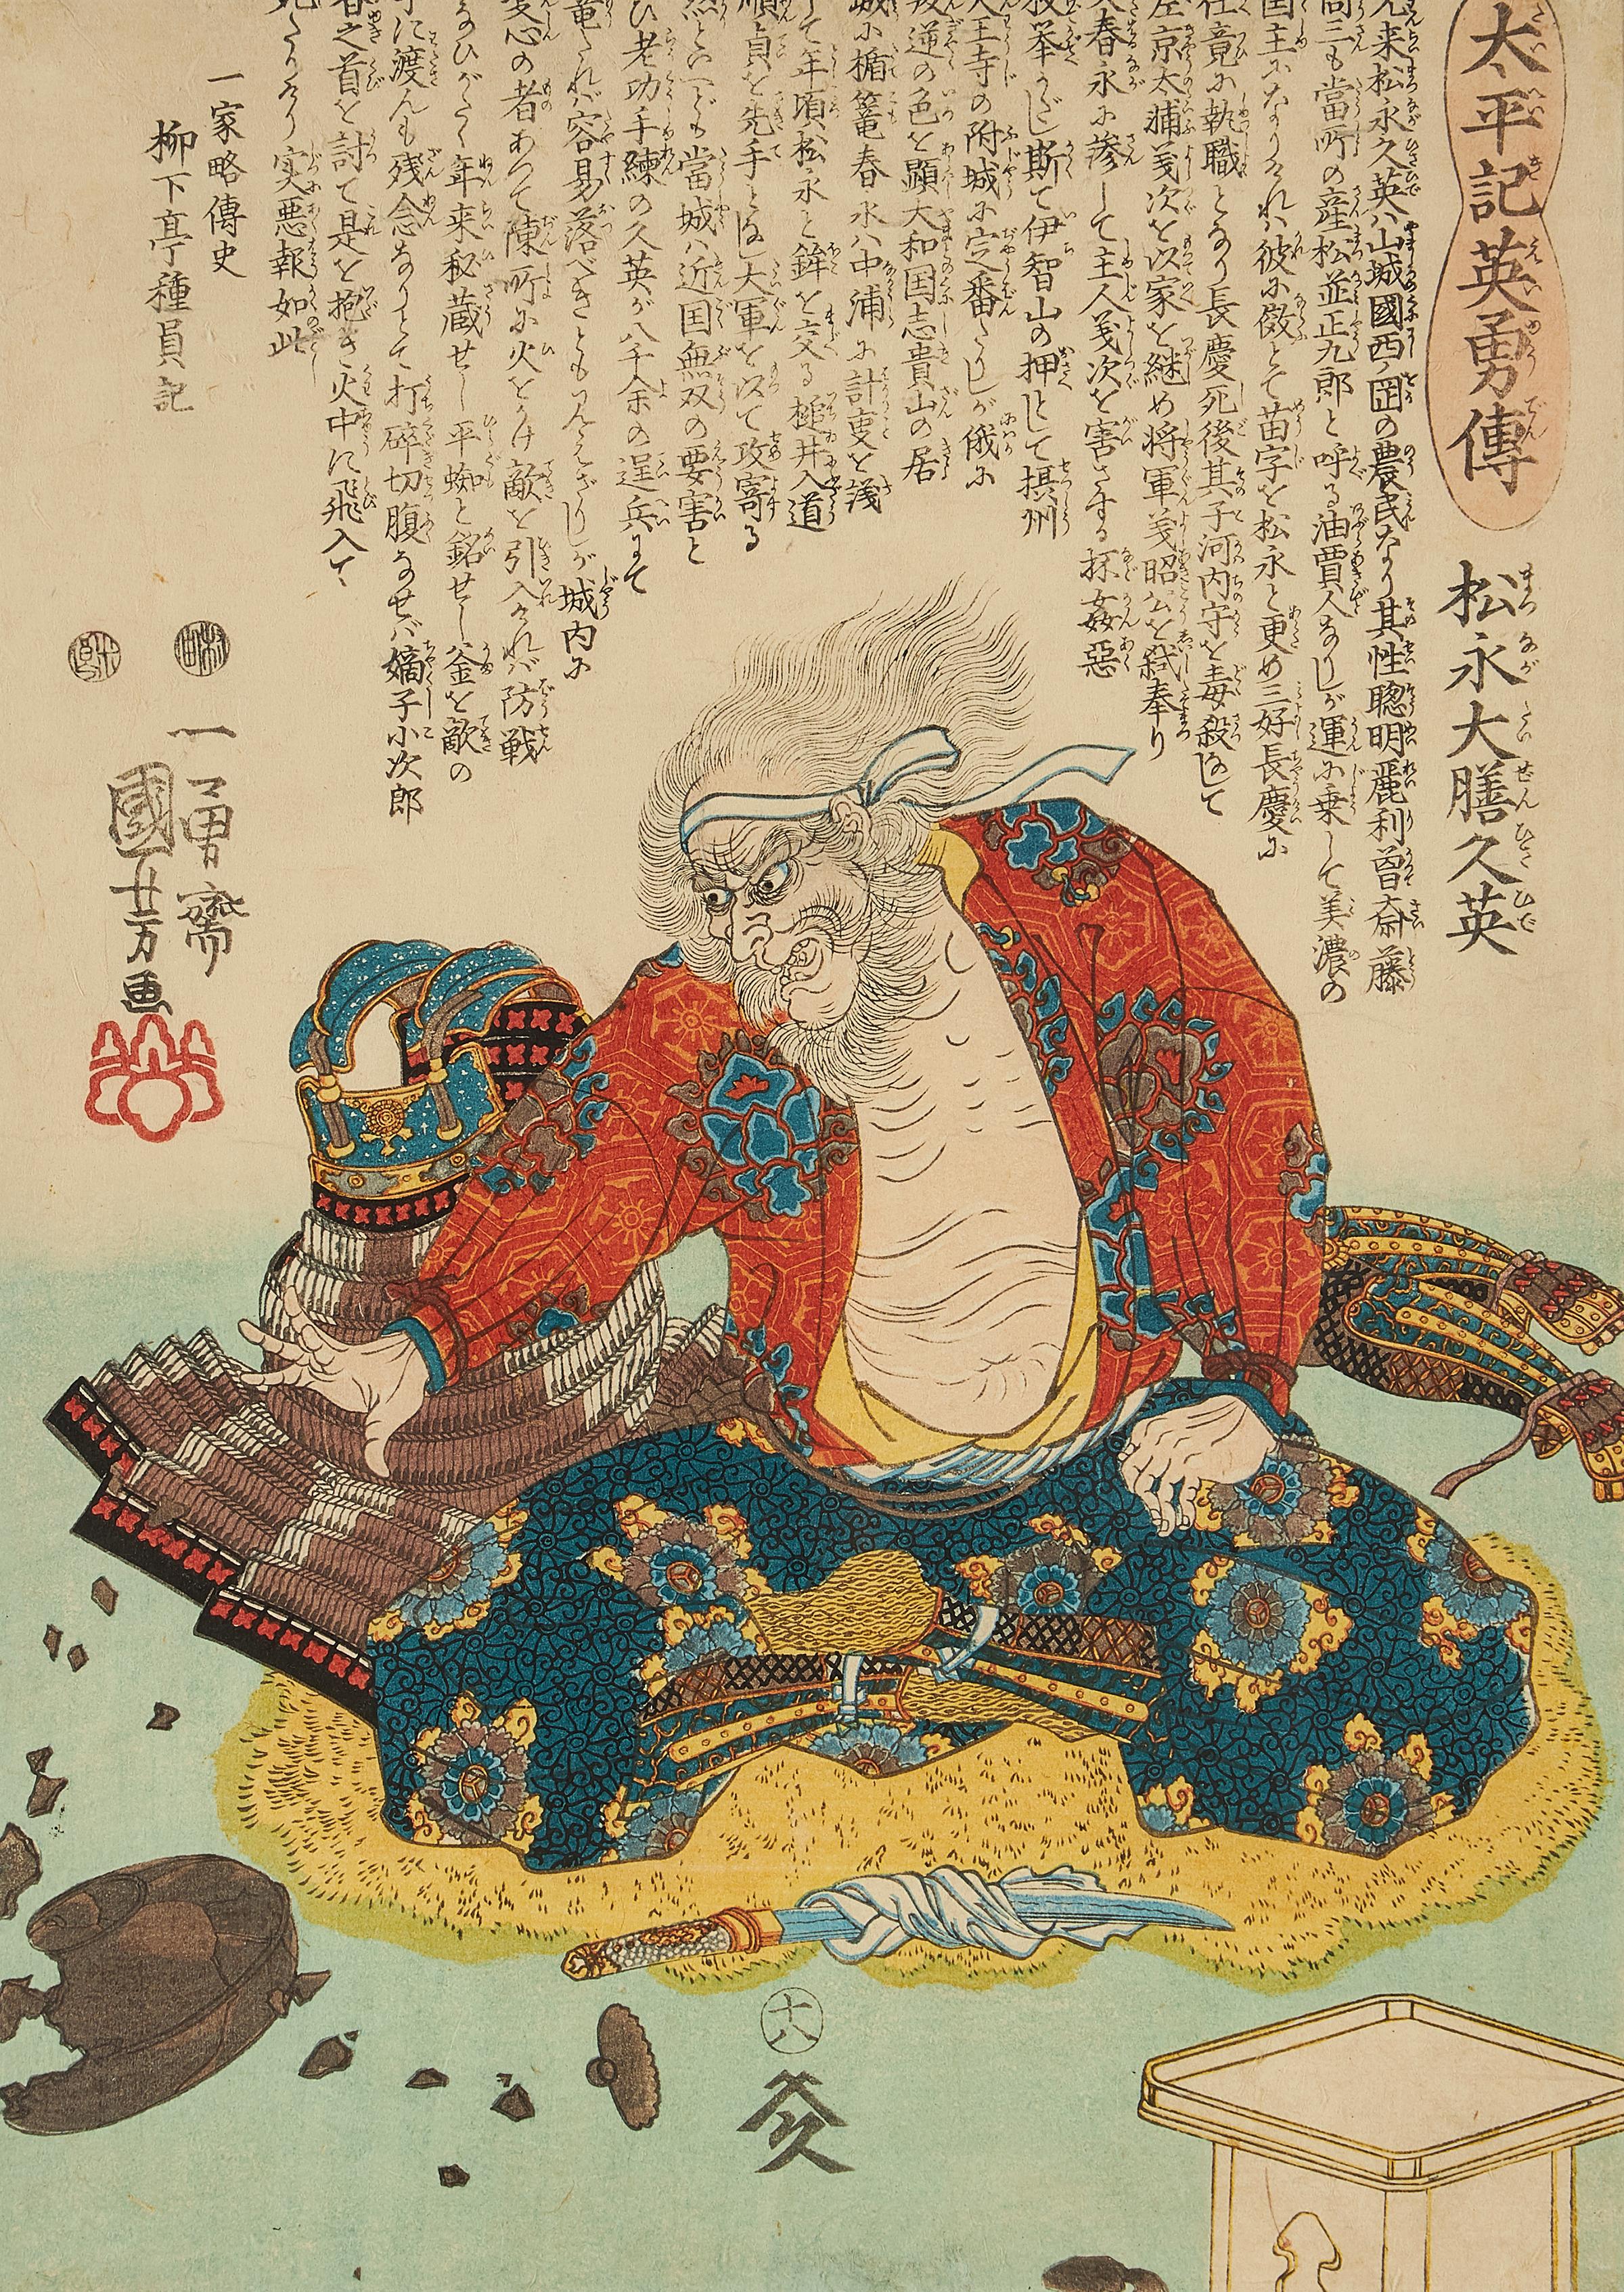 太平記英勇傳
たいへいきえいゆうでん
松永大膳久英
まつながだいぜんひさひで
元来松永久英ハ山城國西ヶ岡の農民なり其性聰明麗利曾斎藤
尚三も當所の産松並正九郎と呼る油賈人なりしが運に乗して美濃の
国主になりけれハ彼に傚とて苗字を松永と更め三好長慶に
仕竟に執職となり長慶死後其子河内守を毒殺なして
左京太輔義次を以家を継め将軍義昭公を弑奉り
人春永に滲して主人義次を害さする抔姦惡
枚挙かたし斯て伊智山の押として摂州
天王寺の附城に定番たりしが俄に
叛逆の色を顕大和国志貴山の居
城に楯篭春永ハ中浦に計叓を議
して年頃松永と鉾を交る槌井入道
順貞を先手とし大軍を以て攻寄る
然といへども當城ハ近国無双の要害と
いひ老功手練の久英が八千余の逞兵にて
篭たれバ容易落べきとも見えざりしが城内に
変心の者あつて陳所に火をかけ敵を引入けれバ防戦
なりがたく年来秘蔵せし平蜘と銘せし釜を敵の
手に渡んも残念なりとて打碎切腹なせバ嫡子小次郎
春之首を討て是を抱き火中に飛入て
死たりけり実悪報如此
一家略傳史
柳下亭種員記
一勇齋
國芳画
十八